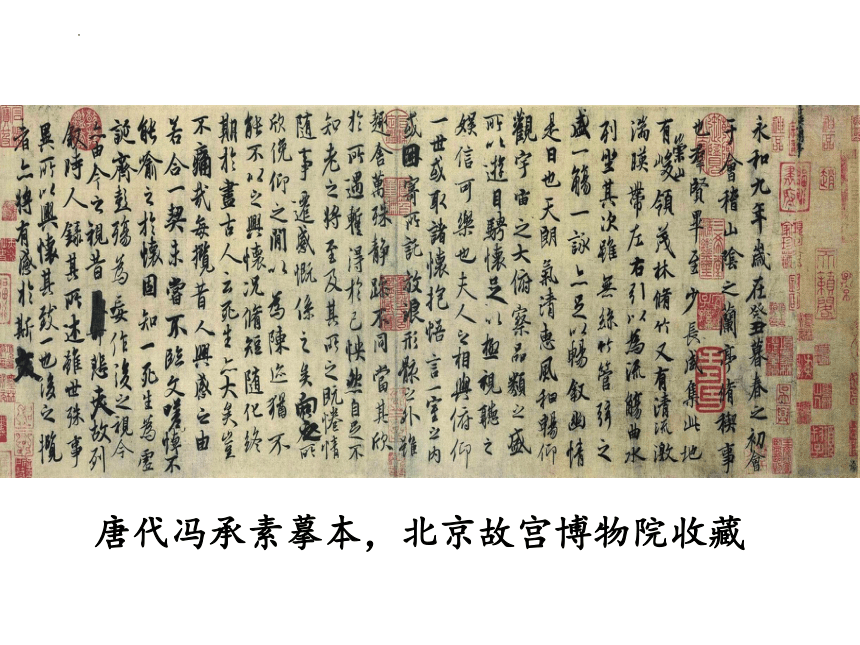 永和九年歲在癸丑暮春之初會
于會稽山陰之蘭亭脩稧事
也羣賢畢至少長咸集此地
有崇山峻領茂林脩竹又有清流激
湍暎帶左右引以為流觴曲水
列坐其次雖無絲竹管弦之
盛一觴一詠亦足以暢敘幽情
是日也天朗氣清惠風和暢仰
觀宇宙之大俯察品類之盛
所以遊目騁懷足以極視聽之
娛信可樂也夫人之相與俯仰
一世或取諸懷抱悟言一室之內
或因寄所託放浪形骸之外雖
趣舍萬殊靜躁不同當其欣
於所遇暫得於己怏然自足不
知老之將至及其所之既惓情
隨事遷感慨係之矣向之所
欣俛仰之閒以為陳迹猶不
能不以之興懷況脩短隨化終
期於盡古人云死生亦大矣豈
不痛哉每攬昔人興感之由
若合一契未嘗不臨文嗟悼不
能喻之於懷固知一死生為虛
誕齊彭殤為妄作後之視今
亦由今之視昔悲夫故列
敘時人錄其所述雖世殊事
異所以興懷其致一也後之攬
者亦將有感於斯文
唐代冯承素摹本，北京故宫博物院收藏